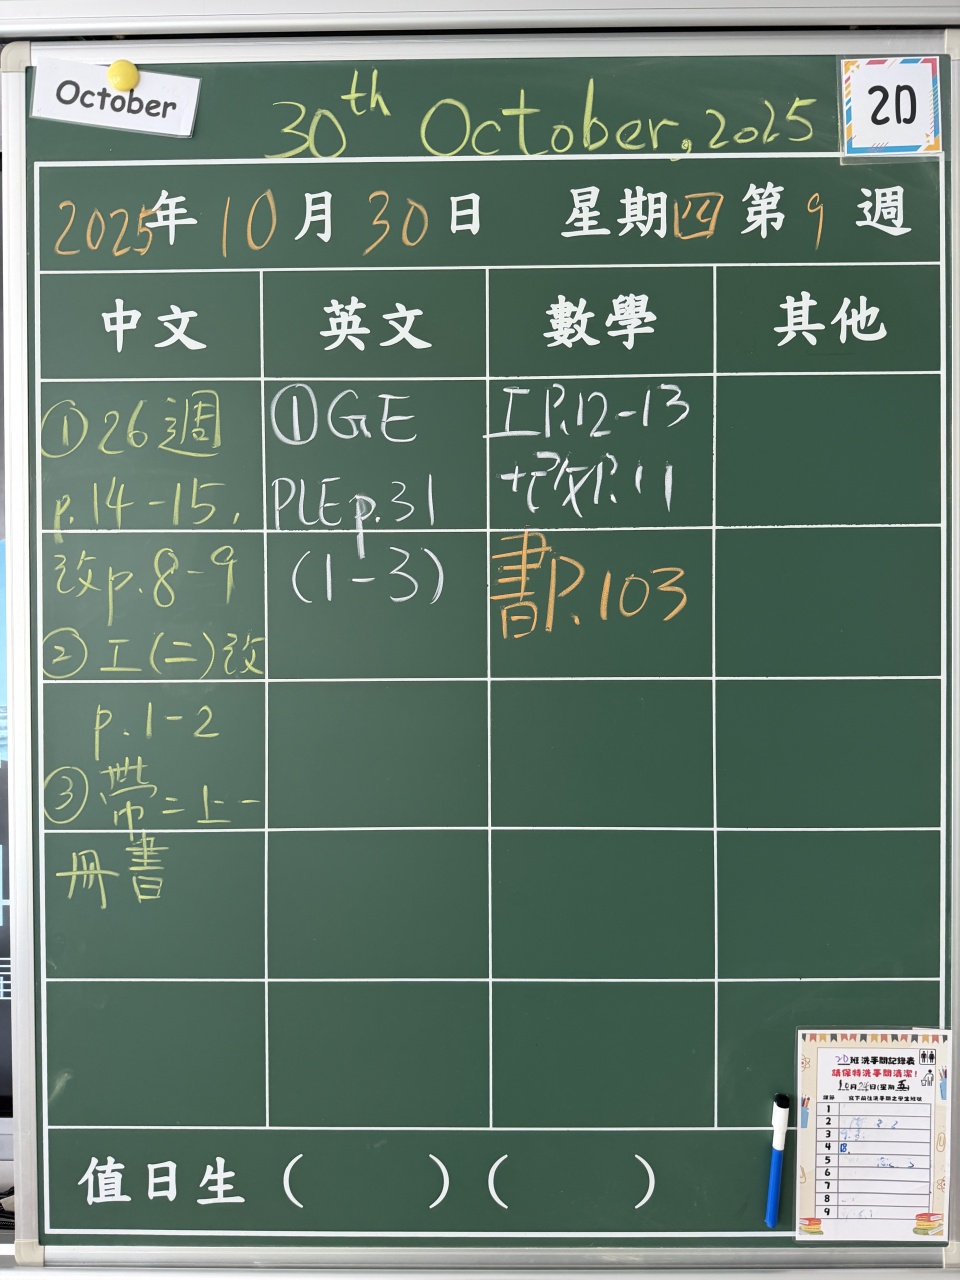 October
30th October, 2025
2D
2025年 10月 30日 星期四 第9週
中文
英文
數學
其他
①26週
p.14-15,
改p.8-9
②工(二)改
p.1-2
③帶二上一
冊書
①GE
PLE p.31
(1-3)
工P.12-13
P.11
書P.103
值日生( )( )
2D班洗手間記錄表
請保持洗手間清潔!
10月24日(星期五)
1
2
3
4
5
6
7
8
9